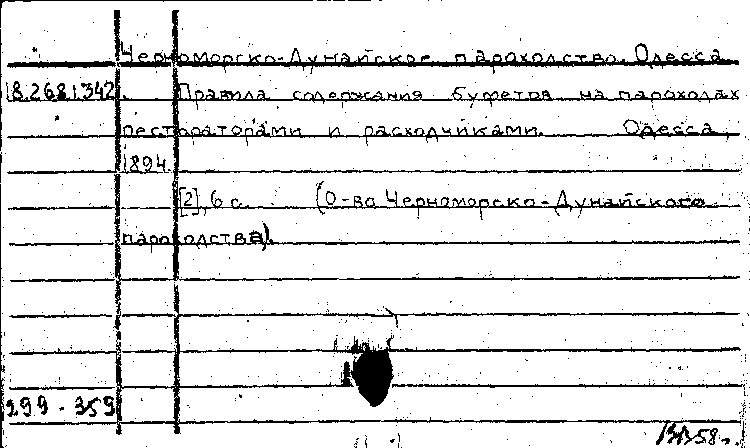 Черноморско-Дунайское пароходство. Одесса
18.268.1.342. Правила содержания буфетов на пароходах
рестораторами и расходчиками. Одесса,
1894.
[2], 6 с. (О-во Черноморско-Дунайского
пароходства).
299-359